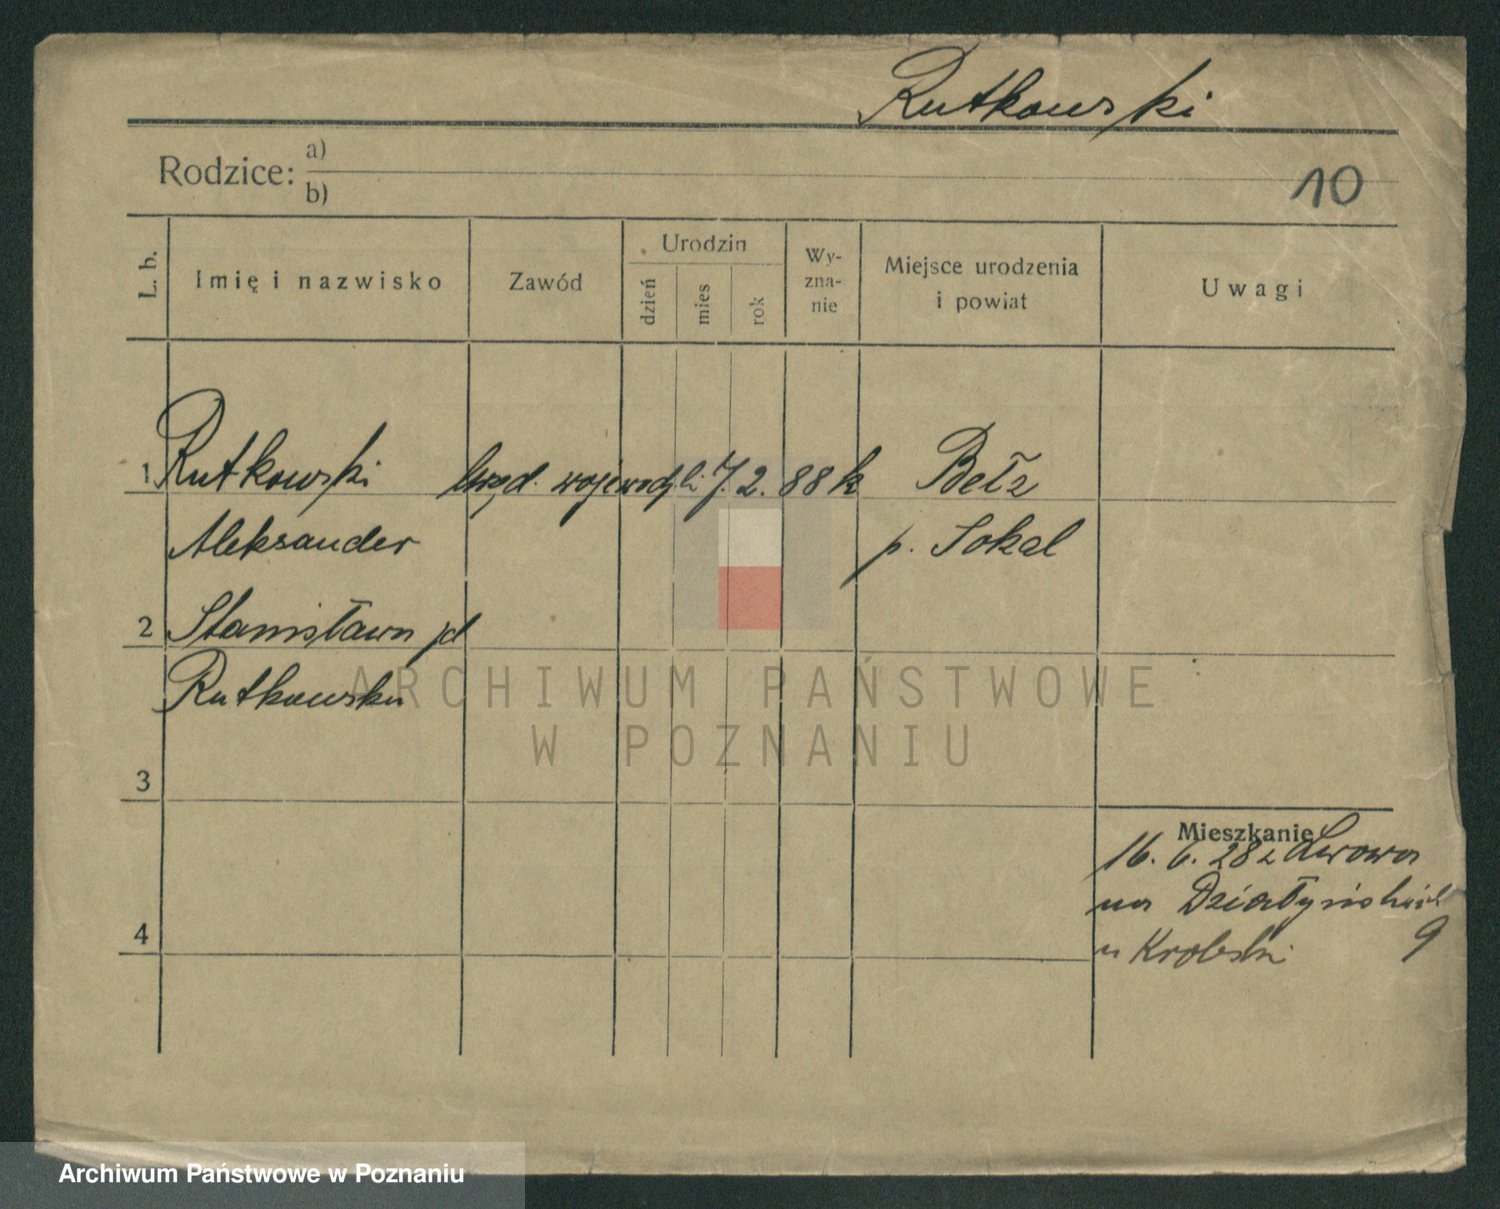 Rutkowski
Rodzice: a)
b)
10
L. b.
Imię i nazwisko
Zawód
Urodzin
dzień
mies
rok
Wy-
zna-
nie
Miejsce urodzenia
i powiat
Uwagi
1 Rutkowski Urzęd. wojewodz. 7. 2. 88 k Bełz
Aleksander p. Sokal
2 Stanisława
Rutkowska
ARCHIWUM PAŃSTWOWE
W POZNANIU
3
Mieszkanie
16. 6. 28 z Lwowa
na Działyńskich
4
9
Archiwum Państwowe w Poznaniu